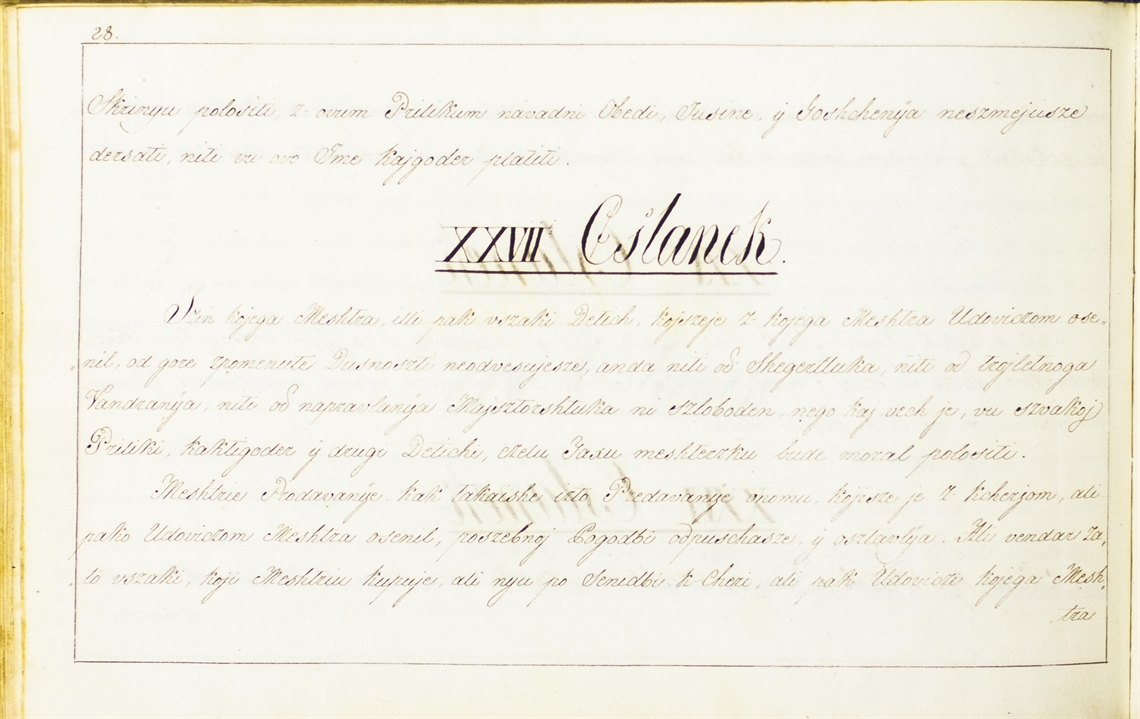 28.
Skrinyu polositi, z-ovum Prilikum navadni Obedi, Jusine, y Goshchenÿa neszmejusze
dersati, niti vu ovo Ime kajgoder platiti.
XXVII Cslanek.
Szin kojega Meshtra, illi pak vszaki Detich, kojszeje z-kojega Meshtra Udoviczom ose-
nil, od gore zpomenute Dusnoszti neodvesujesze, anda niti od Shegertluka, niti od trojletnoga
Vandranÿa, niti od napravlanÿa Majsztorshtuka ni szloboden, nego kaj vech je, vu szvakoj
Priliki, kaktigoder y drugi Detichi, czelu Taxu meshterzku bude moral polositi.
Meshtrie Prodavanÿe, kak takaishe izto Predavanÿe onomu, kojisze je z-kcherjom, ali
pako Udoviczom Meshtra osenil, poszebnoj Pogodbi odpuschasze, y osztavlÿa. Ali vendar za-
to vszaki, koji Meshtriu kupuje, ali nyu po Senidbi k-Cheri, ali pak Udovicze kojega Mesh-
tra